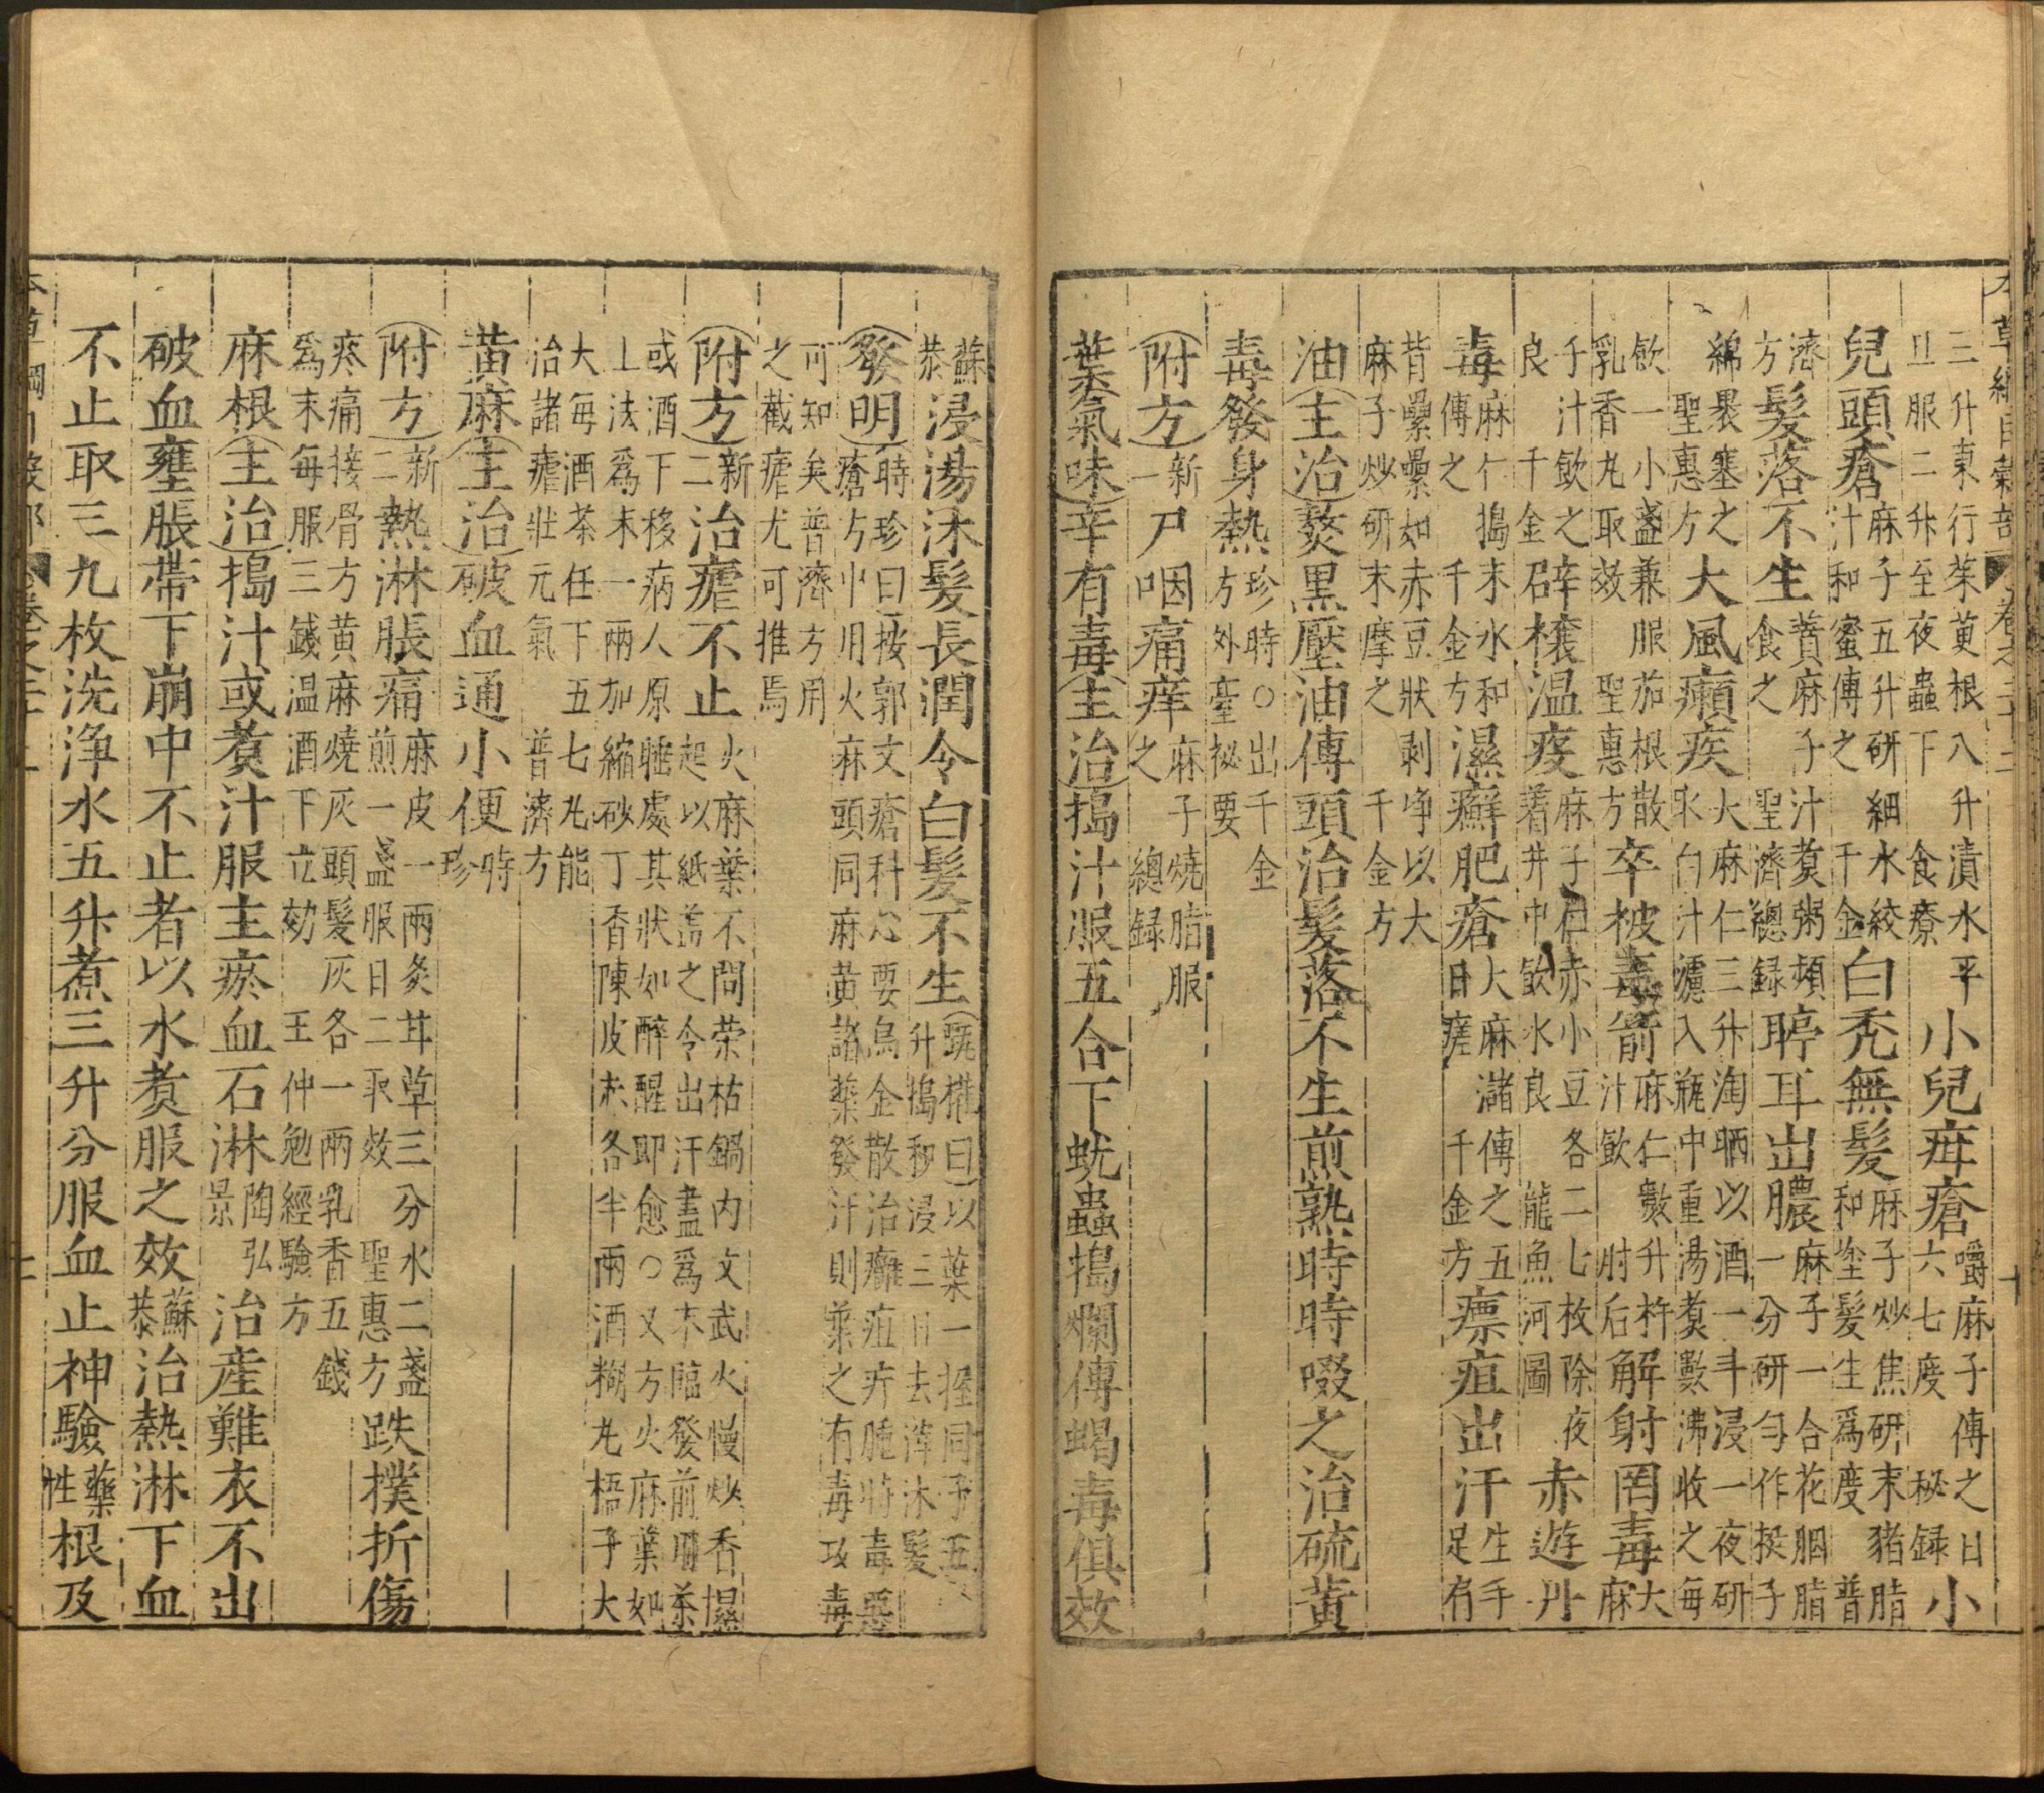 本草綱目穀部 卷之二十二 十
三升東行茱萸根八升漬水平旦服二升至夜蟲下食療 小兒疳瘡 嚼麻子傅之日六七度秘録 小
兒頭瘡 麻子五升研細水絞汁和蜜傅之千金 白禿無髮 麻子炒焦研末豬脂和塗髮生爲度普
濟方 髮落不生 蕡麻子汁煑粥頻食之聖濟總録 聤耳出膿 麻子一合花胭脂一分研匀作挺子
綿褁塞之聖惠方 大風癩疾 大麻仁三升淘晒以酒一斗浸一夜研取白汁濾入瓶中重湯煑數沸收之每
飲一小盞兼服茄根散乳香丸取效聖惠方 卒被毒箭 麻仁數升杵汁飲肘后 解射罔毒 大麻
子汁飲之良千金 辟禳温疫 麻子仁赤小豆各二七枚除夜着井中飲水良龍魚河圖 赤遊丹
毒 麻仁搗末水和傅之千金方 濕癬肥瘡 大麻濇傅之五日瘥千金方 瘭疽出汗 生手足有
背纍纍如赤豆狀剥净以大麻子炒研末摩之千金方
油(主治)熬黑壓油傅頭治髮落不生煎熟時時啜之治硫黃
毒發身熱 時珍○出千金方外臺祕要
(附方)新一 尸咽痛痒 麻子燒脂服之總録
葉(氣味)辛有毒(主治)搗汁服五合下蚘蟲搗爛傅蝎毒俱效
蘇恭 浸湯沐髮長潤令白髮不生 (甄權曰)以葉一握同子五升搗和浸三日去滓沐髮
(發明) (時珍曰)按郭文瘡科心要烏金散治癰疽疔腫時毒惡瘡方中用火麻頭同麻黃諸藥發汗則葉之有毒攻毒
可知矣普濟方用之截瘧尤可推焉
(附方)新二 治瘧不止 火麻葉不問荣枯鍋内文武火慢炒香撋起以紙葢之令出汗盡爲末臨發前用茶
或酒下移病人原睡處其狀如醉醒即愈○又方火麻葉如上法爲末一兩加縮砂丁香陳皮木各半兩酒糊丸梧子大
大每酒茶任下五七丸能治諸瘧壯元氣普濟方
黃麻(主治)破血通小便 時珍
(附方)新二 熱淋脹痛 麻皮一兩炙甘草三分水二盞煎一盞服日二取效聖惠方 跌撲折傷
疼痛接骨方黃麻燒灰頭髮灰各一兩乳香五錢爲末每服三錢温酒下立効王仲勉經驗方
麻根(主治)搗汁或煑汁服主瘀血石淋 陶弘景 治產難衣不出
破血壅脹帶下崩中不止者以水煑服之效 蘇恭 治熱淋下血
不止取三九枚洗净水五升煮三升分服血止神驗 藥性 根及
本草綱目穀部 卷之二十二 十一